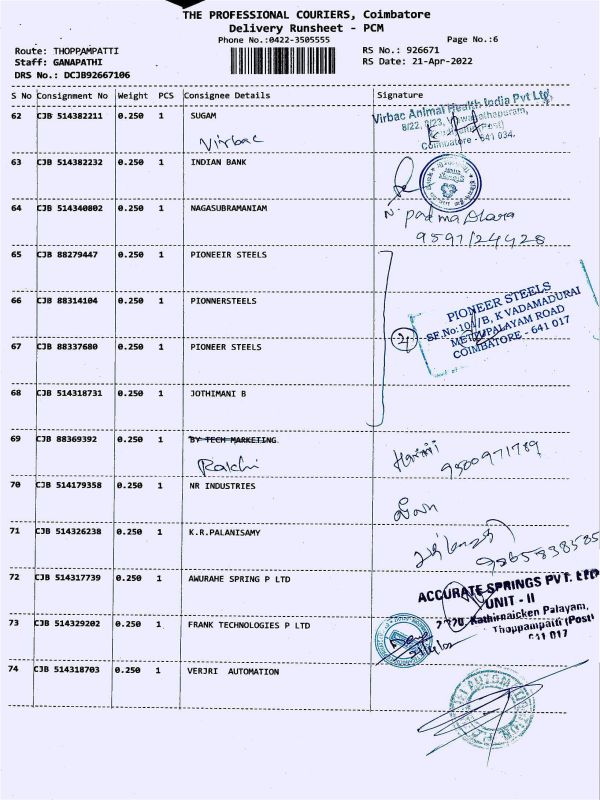 THE PROFESSIONAL COURIERS, Coimbatore
Delivery Runsheet - PCM
Phone No.:0422-3505555
Page No.:6
Route: THOPPAMPATTI
RS No.: 926671
Staff: GANAPATHI
RS Date: 21-Apr-2022
DRS No.: DCJB92667106
S No Consignment No Weight PCS Consignee Details Signature
62 CJB 514382211 0.250 1 SUGAM
Virbac
Virbac Animal Health India Pvt Ltd,
8/22, 8/23,
Coimbatore - 641 034.
63 CJB 514382232 0.250 1 INDIAN BANK
64 CJB 514340802 0.250 1 NAGASUBRAMANIAM
N. Padma
9597124428
65 CJB 88279447 0.250 1 PIONEEIR STEELS
66 CJB 88314104 0.250 1 PIONNERSTEELS
PIONEER STEELS
SF.No:101/B, K VADAMADURAI
METTUPALAYAM ROAD
COIMBATORE - 641 017
67 CJB 88337680 0.250 1 PIONEER STEELS
4
68 CJB 514318731 0.250 1 JOTHIMANI B
69 CJB 88369392 0.250 1 BY TECH MARKETING
Rakhi
9500971789
70 CJB 514179358 0.250 1 NR INDUSTRIES
71 CJB 514326238 0.250 1 K.R.PALANISAMY
9865838585
72 CJB 514317739 0.250 1 AWURAHE SPRING P LTD
ACCURATE SPRINGS PVT. LTD
UNIT - II
Kathirnaicken Palayam,
Thoppampatti (Post)
641 017
73 CJB 514329202 0.250 1 FRANK TECHNOLOGIES P LTD
74 CJB 514318703 0.250 1 VERJRI AUTOMATION